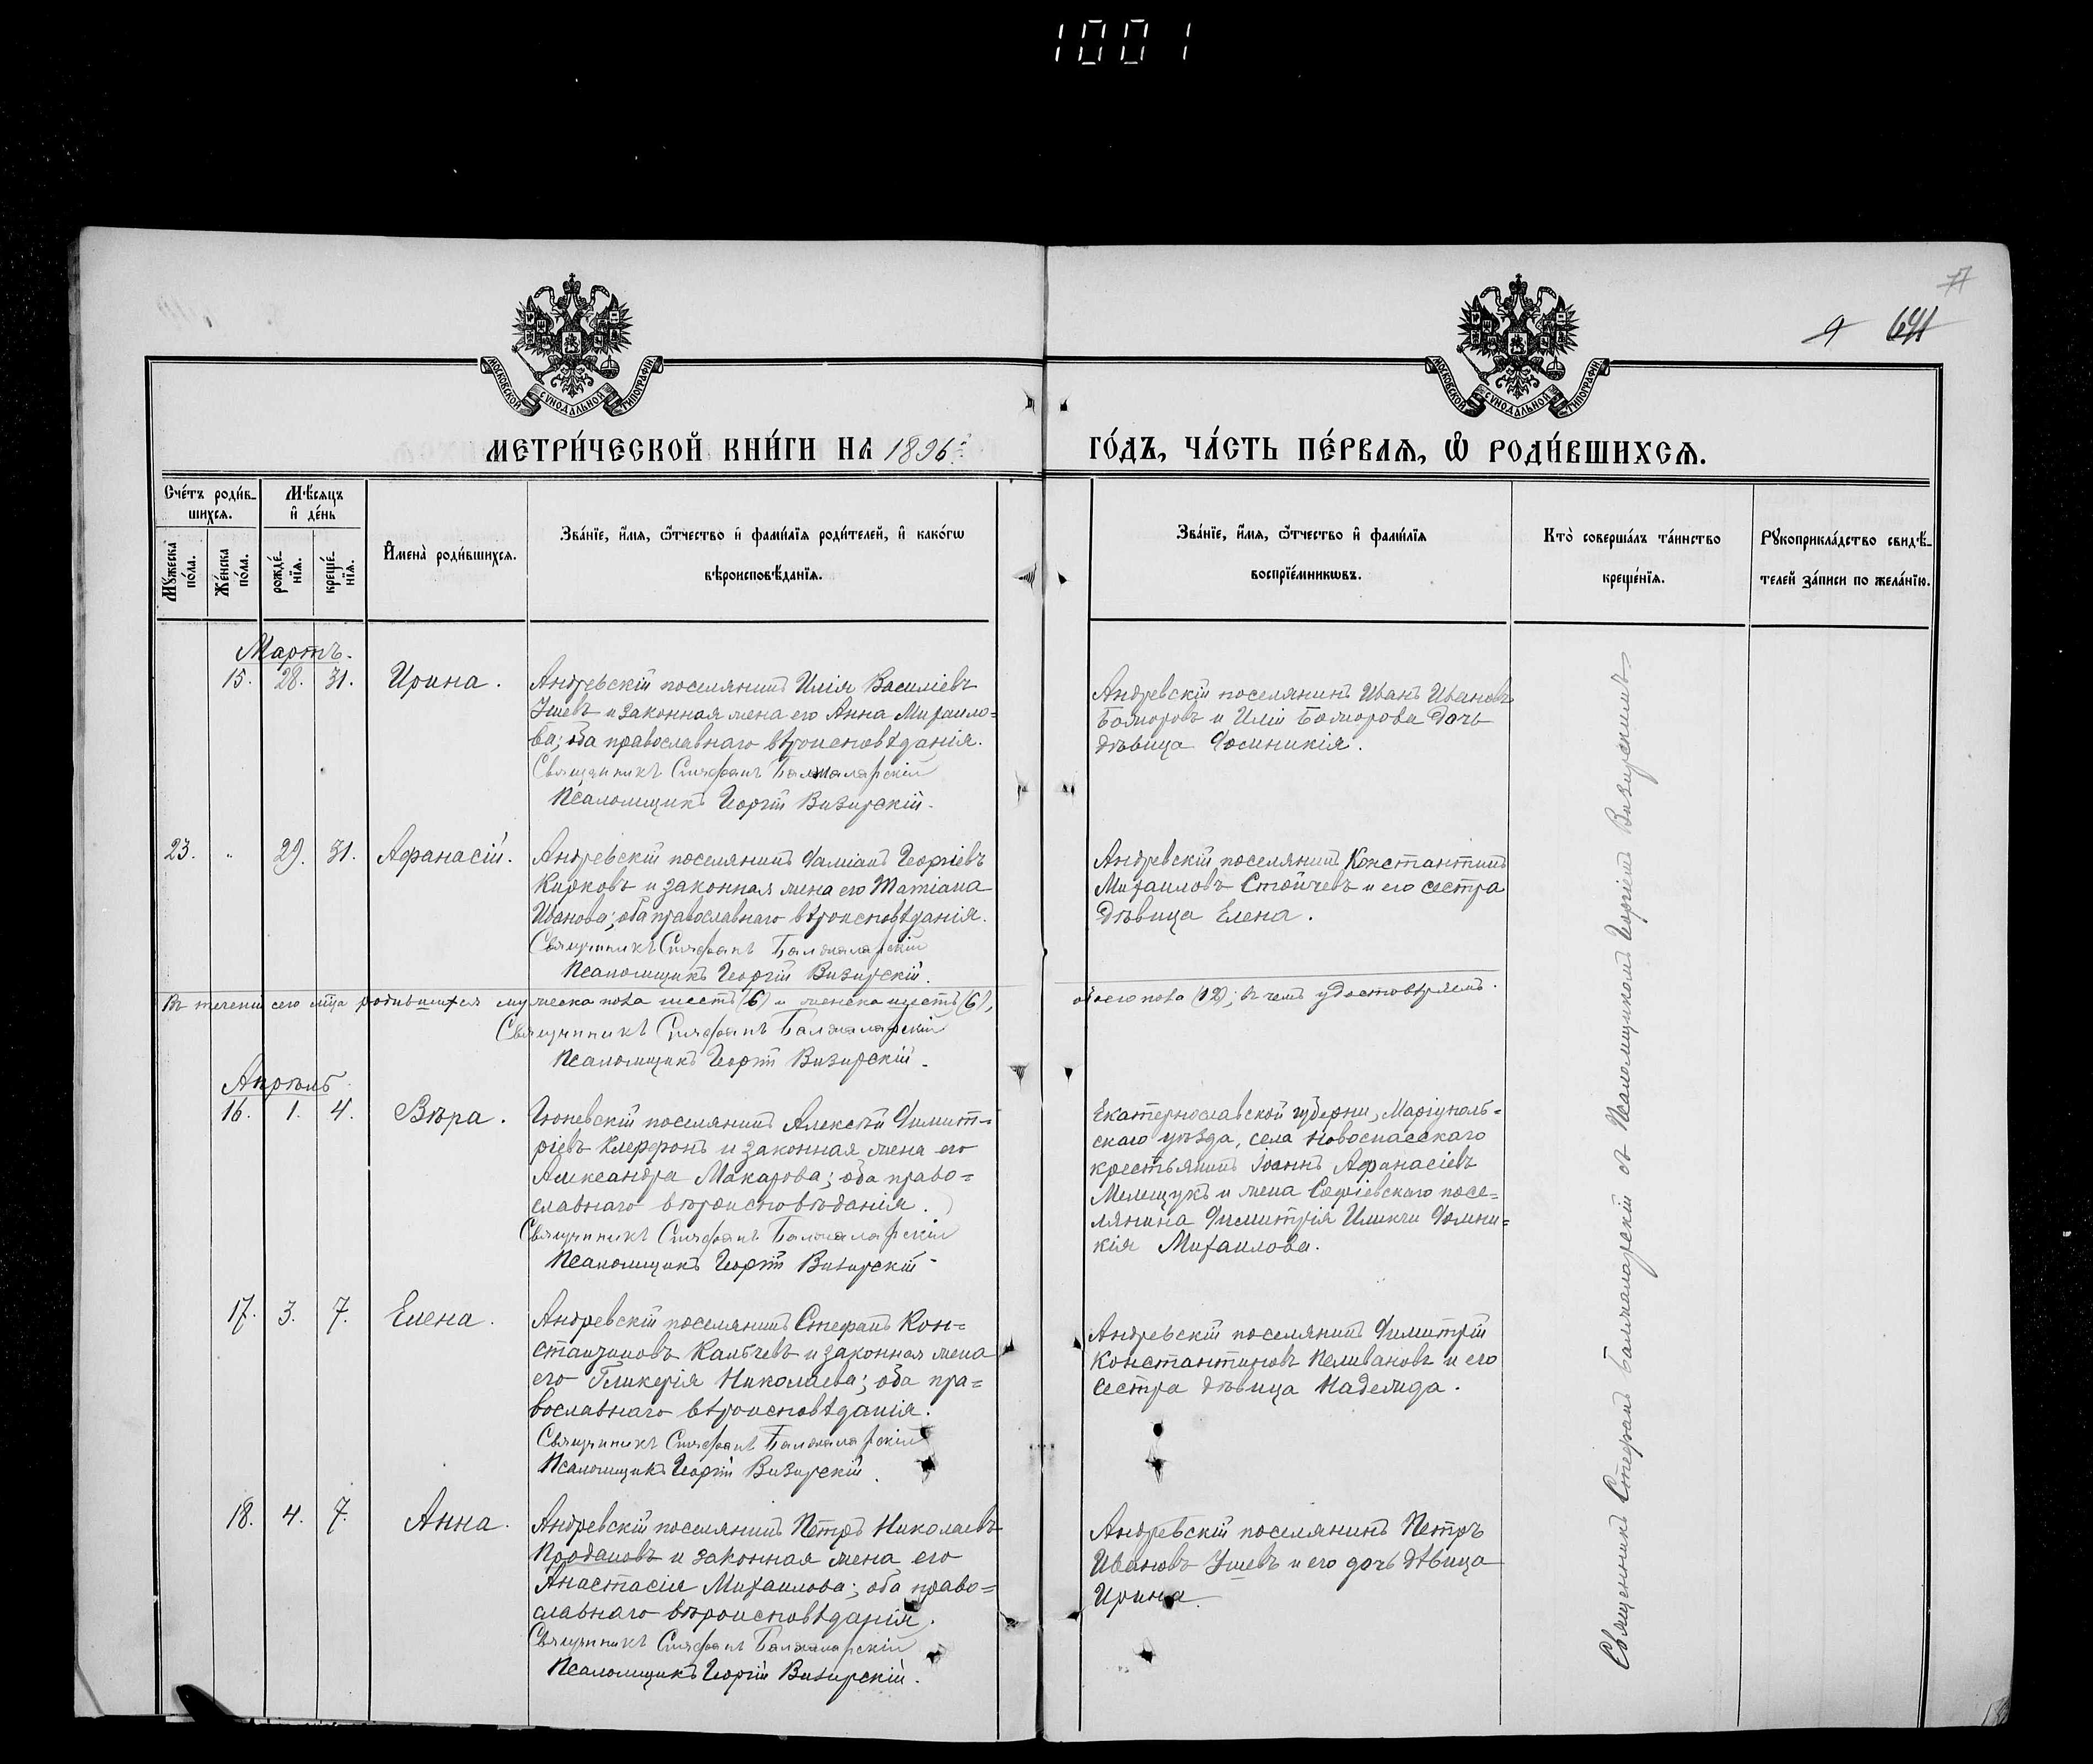 1001
77
9 641
МОСКОВСКОЙ СѴНОДАЛЬНОЙ ТИПОГРАФІИ.
МОСКОВСКОЙ СѴНОДАЛЬНОЙ ТИПОГРАФІИ.
МЕТРИ́ЧЕСКОЙ КНИ́ГИ НА 1896 й
ГО́ДЪ, ЧА́СТЬ ПЕ́РВАѦ, Ѡ҆ РОДИ́ВШИХСѦ.
Сче́тъ роди́в-
шихсѧ.
Мѣ́сѧцъ
и҆ де́нь
Мꙋ́жеска по́ла.
Же́нска по́ла.
рожде́-
нїѧ.
креще́-
нїѧ.
И҆мена̀ роди́вшихсѧ.
Зва́нїе, и҆́мѧ, ѻ҆́тчество и҆ фами́лїѧ роди́телей, и҆ како́гѡ
вѣроисповѣ́данїѧ.
Зва́нїе, и҆́мѧ, ѻ҆́тчество и҆ фами́лїѧ
воспрїе́мникѡвъ.
Кто̀ соверша́лъ та́инство
креще́нїѧ.
Рꙋкоприкла́дство свидѣ́-
телей за́писи по жела́нїю.
Мартъ.
15. 28. 31. Ирина.
Андревскій поселянинъ Илія Василіевъ
Ушевъ и законная жена его Анна Михаило-
ва; оба православнаго вѣроисповѣданія.
Священникъ Стефанъ Балжаларскій
Псаломщикъ Георгій Визирскій.
Андревскій поселянинъ Иванъ Ивановъ
Божоровъ и Иліи Божорова дочь
дѣвица Домникія.
23. " 29. 31. Афанасій.
Андревскій поселянинъ Даміанъ Георгіевъ
Кирковъ и законная жена его Татіана
Иванова; оба православнаго вѣроисповѣданія.
Священникъ Стефанъ Балжаларскій
Псаломщикъ Георгій Визирскій.
Андревскій поселянинъ Константинъ
Михаиловъ Стойчевъ и его сестра
дѣвица Елена.
Въ теченіи сего мѣца родившихся мужеска пола шесть (6) и женска шесть (6),
обоего пола (12); въ чемъ удостовѣряемъ.
Священникъ Стефанъ Балжаларскій
Псаломщикъ Георгій Визирскій.
Апрѣль
16. 1. 4. Вѣра.
Гюневскій поселянинъ Алексѣй Димит-
ріевъ Клерфонъ и законная жена его
Александра Макарова; оба право-
славнаго вѣроисповѣданія.
Священникъ Стефанъ Балжаларскій
Псаломщикъ Георгій Визирскій
Екатеринославской губерніи, Маріуполь-
скаго уѣзда, села Новоспасскаго
крестьянинъ Іоаннъ Афанасіевъ
Мелещукъ и жена Софіевскаго посе-
лянина Димитрія Иликчи Домни-
кія Михаилова.
17. 3. 7. Елена.
Андревскій поселянинъ Стефанъ Кон-
стантиновъ Калчевъ и законная жена
его Гликерія Николаева; оба пра-
вославнаго вѣроисповѣданія.
Священникъ Стефанъ Балжаларскій
Псаломщикъ Георгій Визирскій.
Андревскій поселянинъ Димитрій
Константиновъ Пеливановъ и его
сестра дѣвица Надежда.
18. 4. 7. Анна.
Андревскій поселянинъ Петръ Николаевъ
Продановъ и законная жена его
Анастасія Михаилова; оба право-
славнаго вѣроисповѣданія.
Священникъ Стефанъ Балжаларскій
Псаломщикъ Георгій Визирскій.
Андревскій поселянинъ Петръ
Ивановъ Ушевъ и его дочь дѣвица
Ирина.
Священникъ Стефанъ Балжаларскій съ Псаломщикомъ Георгіемъ Визирскимъ